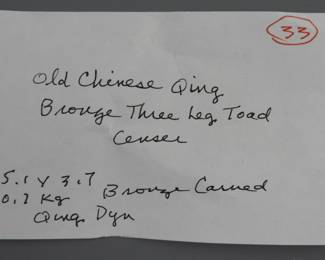 33
Old Chinese Qing
Bronze Three Leg Toad
Censer
5.1 x 3.7 Bronze Carved
0.7 Kg
Qing Dyn